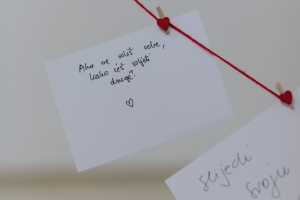 Ako ne voliš sebe,
kako ćeš voljeti
druge?
♡
slijedi
svoju